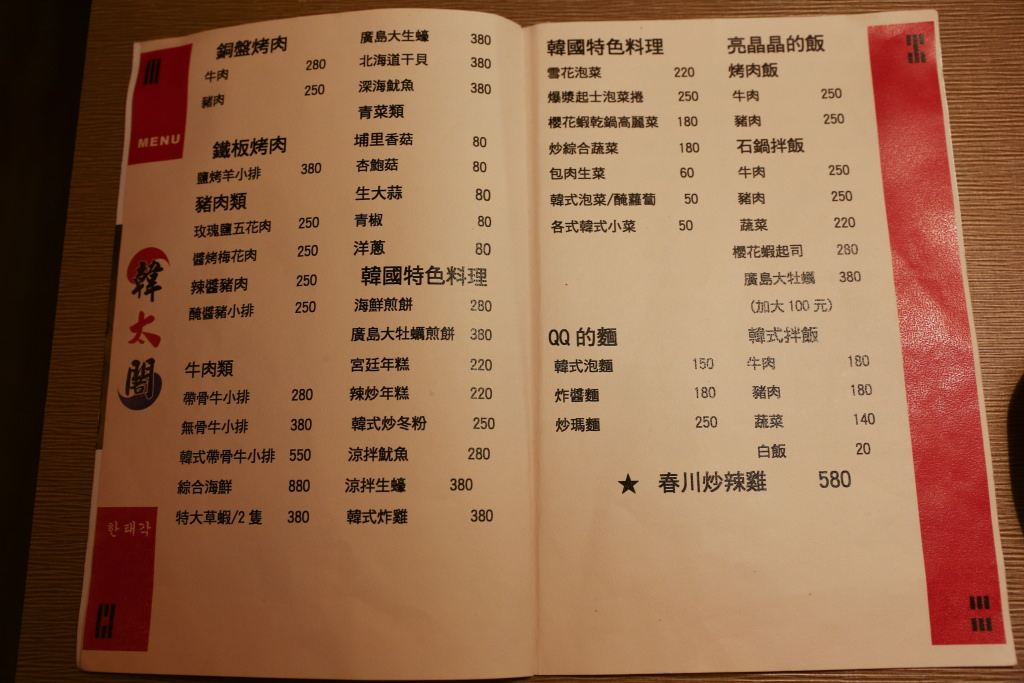 MENU
韓太閣
한태각
銅盤烤肉
牛肉 280
豬肉 250
鐵板烤肉
鹽烤羊小排 380
豬肉類
玫瑰鹽五花肉 250
醬烤梅花肉 250
辣醬豬肉 250
醃醬豬小排 250
牛肉類
帶骨牛小排 280
無骨牛小排 380
韓式帶骨牛小排 550
綜合海鮮 880
特大草蝦/2隻 380
廣島大生蠔 380
北海道干貝 380
深海魷魚 380
青菜類
埔里香菇 80
杏鮑菇 80
生大蒜 80
青椒 80
洋蔥 80
韓國特色料理
海鮮煎餅 280
廣島大牡蠣煎餅 380
宮廷年糕 220
辣炒年糕 220
韓式炒冬粉 250
涼拌魷魚 280
涼拌生蠔 380
韓式炸雞 380
韓國特色料理
雪花泡菜 220
爆漿起士泡菜捲 250
櫻花蝦乾鍋高麗菜 180
炒綜合蔬菜 180
包肉生菜 60
韓式泡菜/醃蘿蔔 50
各式韓式小菜 50
QQ的麵
韓式泡麵 150
炸醬麵 180
炒瑪麵 250
亮晶晶的飯
烤肉飯
牛肉 250
豬肉 250
石鍋拌飯
牛肉 250
豬肉 250
蔬菜 220
櫻花蝦起司 280
廣島大牡蠣 380
(加大100元)
韓式拌飯
牛肉 180
豬肉 180
蔬菜 140
白飯 20
★ 春川炒辣雞 580